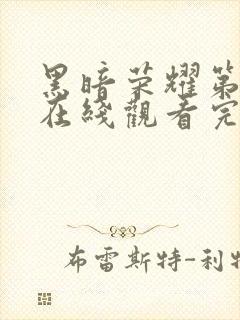 黑暗荣耀第
在綫觀看完
布雷斯特-利特